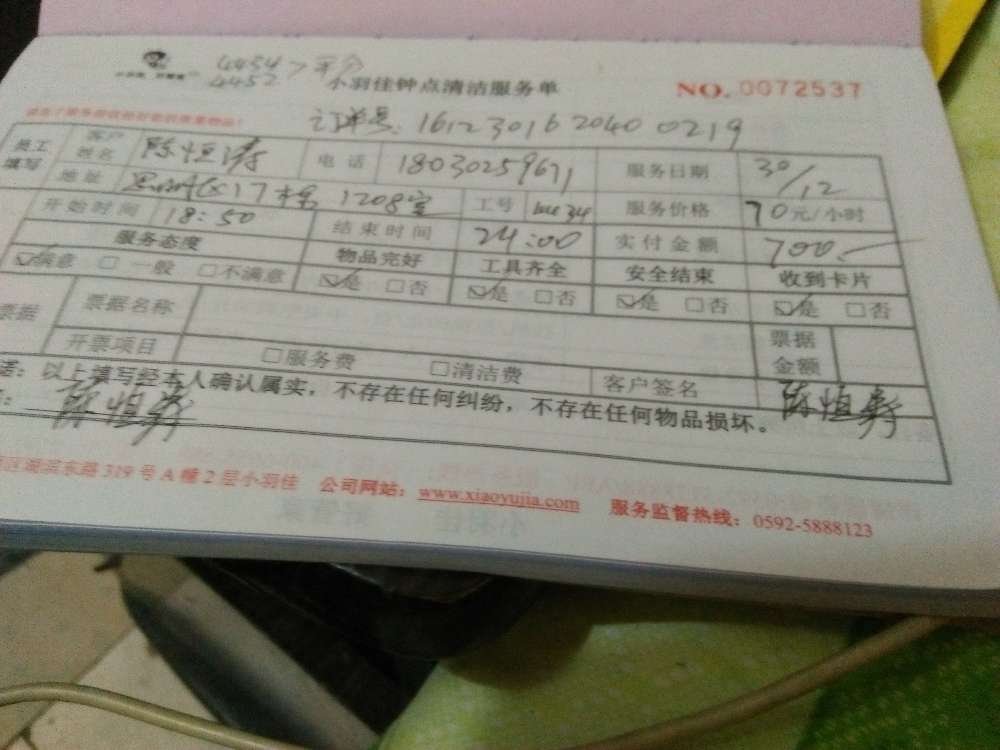 4454
4452 > 平台
小羽佳钟点清洁服务单 NO. 0072537
订单号: 1612301620400219
员工填写 客户姓名 陈恒涛 电话 18030259671 服务日期 30/12
地址 17栋 1208室 工号 服务价格 70元/小时
开始时间 18:50 结束时间 24:00 实付金额 700.
服务态度 物品完好 工具齐全 安全结束 收到卡片
☑满意 □一般 □不满意 ☑是 □否 ☑是 □否 ☑是 □否 ☑是 □否
票据 票据名称 票据金额
开票项目 □服务费 □清洁费 客户签名 陈恒涛
：以上填写经本人确认属实，不存在任何纠纷，不存在任何物品损坏。
陈恒涛
区湖滨东路319号A幢2层小羽佳 公司网站：www.xiaoyujia.com 服务监督热线：0592-5888123